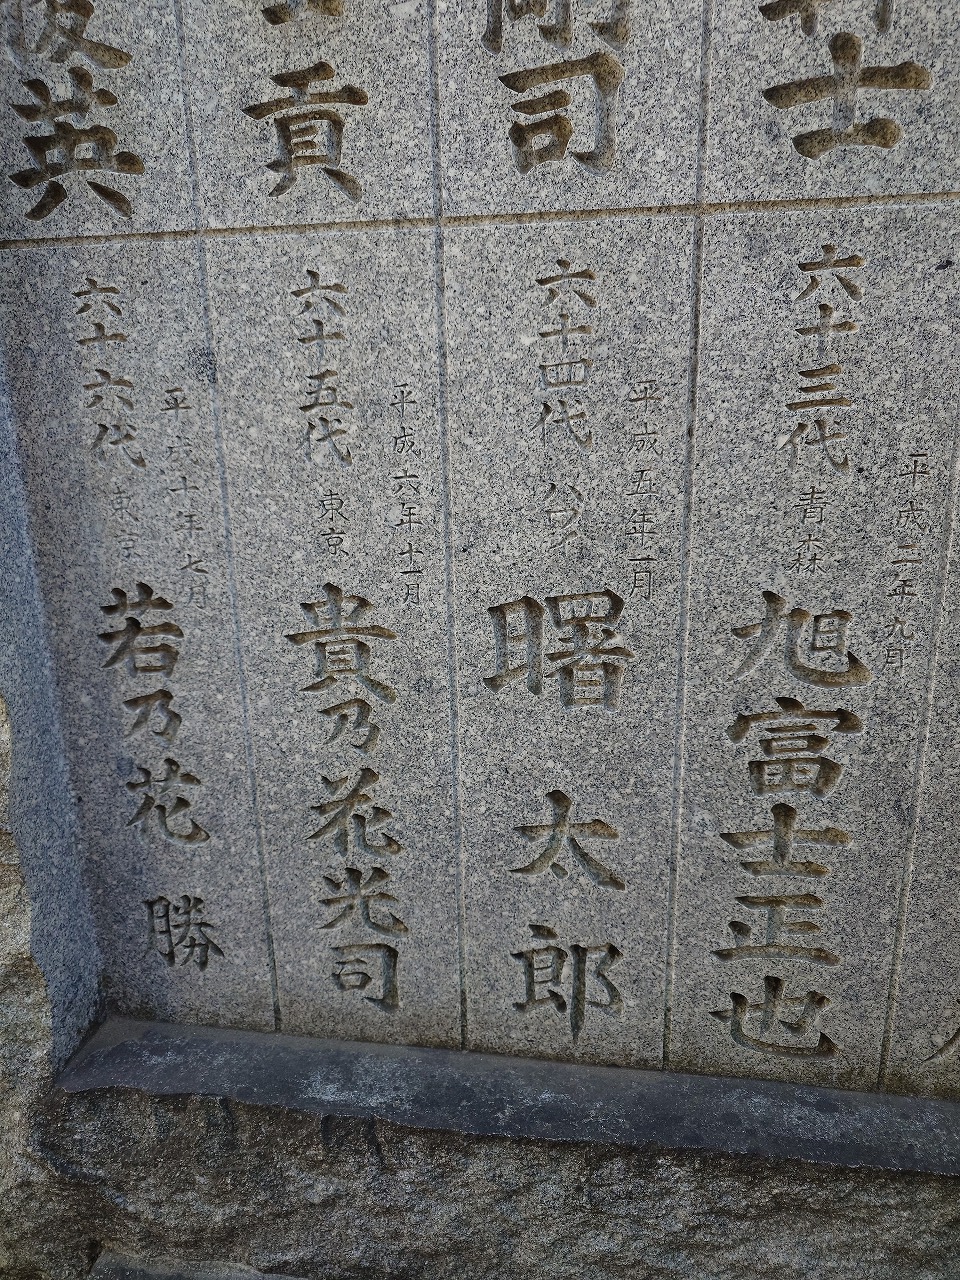 士
司
貢
俊英
平成二年九月
六十三代 青森 旭富士正也
平成五年一月
六十四代 ハワイ 曙 太郎
平成六年十一月
六十五代 東京 貴乃花光司
平成十年七月
六十六代 東京 若乃花 勝